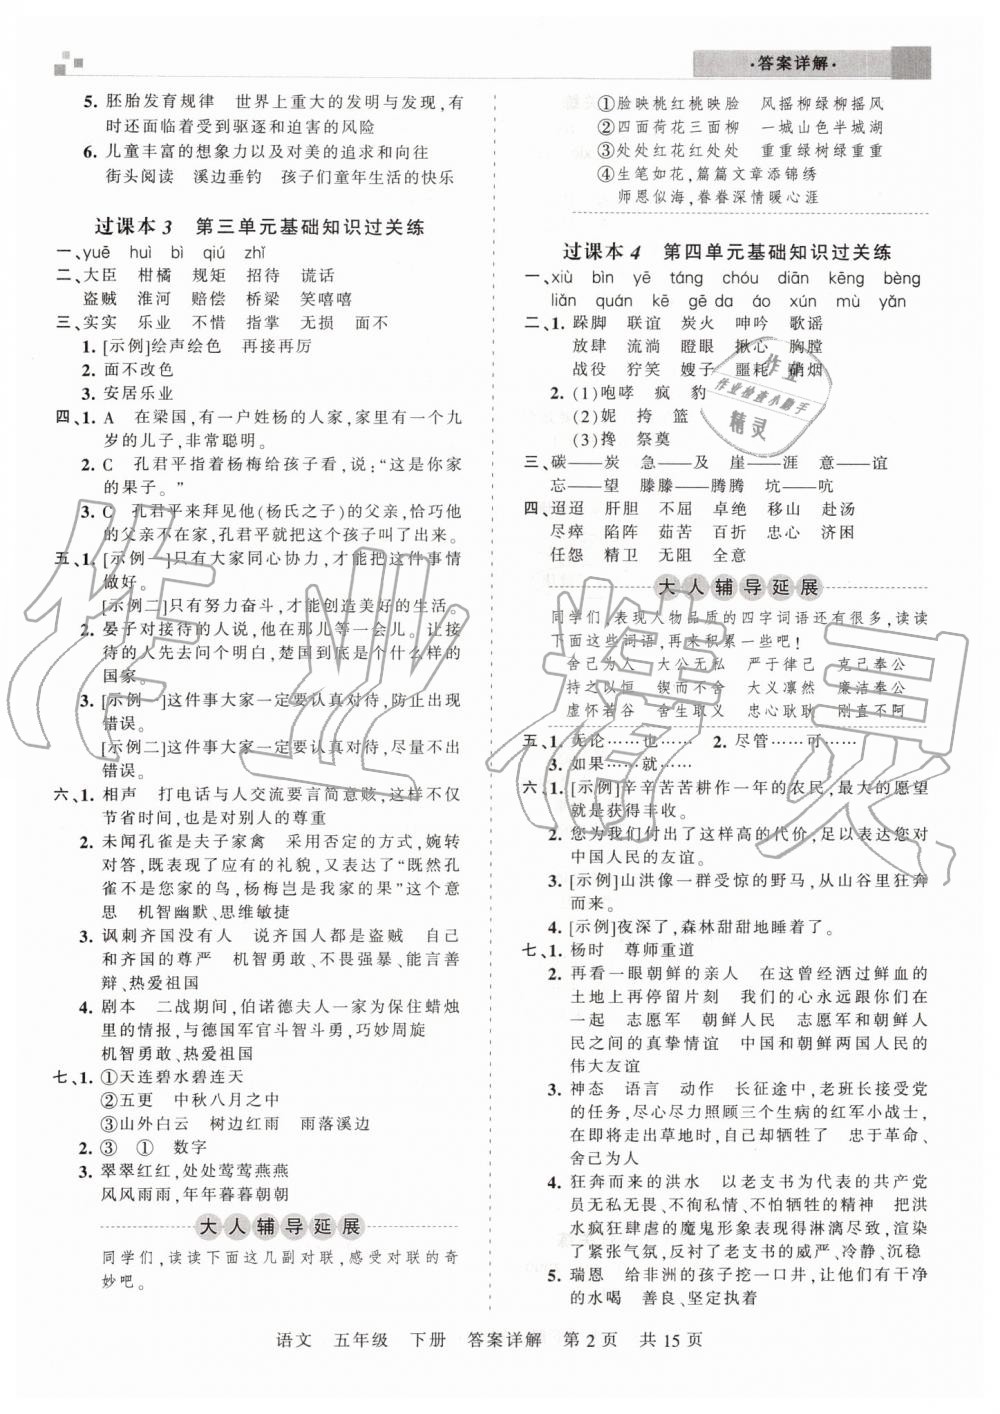 ·答案详解·
5. 胚胎发育规律　世界上重大的发明与发现,有
时还面临着受到驱逐和迫害的风险
6. 儿童丰富的想象力以及对美的追求和向往
街头阅读　溪边垂钓　孩子们童年生活的快乐
过课本 3　第三单元基础知识过关练
一、yuē　huì　bì　qiú　zhǐ
二、大臣　柑橘　规矩　招待　谎话
盗贼　淮河　赔偿　桥梁　笑嘻嘻
三、实实　乐业　不惜　指掌　无损　面不
1. [示例]绘声绘色　再接再厉
2. 面不改色
3. 安居乐业
四、1. A　在梁国,有一户姓杨的人家,家里有一个九
岁的儿子,非常聪明。
2. C　孔君平指着杨梅给孩子看,说:“这是你家
的果子。”
3. C　孔君平来拜见他(杨氏之子)的父亲,恰巧他
的父亲不在家,孔君平就把这个孩子叫了出来。
五、1. [示例一]只有大家同心协力,才能把这件事情
做好。
[示例二]只有努力奋斗,才能创造美好的生活。
2. 晏子对接待的人说,他在那儿等一会儿。让接
待的人先去问一个明白,楚国到底是个什么样的
国家。
3. [示例一]这件事大家一定要认真对待,防止出现
错误。
[示例二]这件事大家一定要认真对待,尽量不出
错误。
六、1. 相声　打电话与人交流要言简意赅,这样不仅
节省时间,也是对别人的尊重
2. 未闻孔雀是夫子家禽　采用否定的方式,婉转
对答,既表现了应有的礼貌,又表达了“既然孔
雀不是您家的鸟,杨梅岂是我家的果”这个意
思　机智幽默、思维敏捷
3. 讽刺齐国没有人　说齐国人都是盗贼　自己
和齐国的尊严　机智勇敢、不畏强暴、能言善
辩、热爱祖国
4. 剧本　二战期间,伯诺德夫人一家为保住蜡烛
里的情报,与德国军官斗智斗勇,巧妙周旋
机智勇敢、热爱祖国
七、1. ①天连碧水碧连天
②五更　中秋八月之中
③山外白云　树边红雨　雨落溪边
2. ③　①　数字
3. 翠翠红红,处处莺莺燕燕
风风雨雨,年年暮暮朝朝
大人辅导延展
同学们,读读下面这几副对联,感受对联的奇
妙吧。
①脸映桃红桃映脸　风摇柳绿柳摇风
②四面荷花三面柳　一城山色半城湖
③处处红花红处处　重重绿树绿重重
④生笔如花,篇篇文章添锦绣
师恩似海,眷眷深情暖心涯
过课本 4　第四单元基础知识过关练
一、xiù　bìn　yē　táng　chóu　diān　kēng　bèng
liǎn　quán　kē　gē da　áo　xún　mù　yǎn
二、1. 跺脚　联谊　炭火　呻吟　歌谣
放肆　流淌　瞪眼　揪心　胸膛
战役　狞笑　嫂子　噩耗　硝烟
2. (1)咆哮　疯　豹
(2)妮　挎　篮
(3)搀　祭奠
三、碳——炭　急——及　崖——涯　意——谊
忘——望　滕滕——腾腾　坑——吭
四、迢迢　肝胆　不屈　卓绝　移山　赴汤
尽瘁　陷阵　茹苦　百折　忠心　济困
任怨　精卫　无阻　全意
大人辅导延展
同学们,表现人物品质的四字词语还有很多,读读
下面这些词语,再来积累一些吧!
舍己为人　大公无私　严于律己　克己奉公
持之以恒　锲而不舍　大义凛然　廉洁奉公
虚怀若谷　舍生取义　忠心耿耿　刚直不阿
五、1. 无论……也……　2. 尽管……可……
3. 如果……就……
六、1. [示例]辛辛苦苦耕作一年的农民,最大的愿望
就是获得丰收。
2. 您为我们付出了这样高的代价,足以表达您对
中国人民的友谊。
3. [示例]山洪像一群受惊的野马,从山谷里狂奔
而来。
4. [示例]夜深了,森林甜甜地睡着了。
七、1. 杨时　尊师重道
2. 再看一眼朝鲜的亲人　在这曾经洒过鲜血的
土地上再停留片刻　我们的心永远跟你们在
一起　志愿军　朝鲜人民　志愿军与朝鲜人
民之间的真挚情谊　中国和朝鲜两国人民的
伟大友谊
3. 神态　语言　动作　长征途中,老班长接受党
的任务,尽心尽力照顾三个生病的红军小战士,
在即将走出草地时,自己却牺牲了　忠于革命、
舍己为人
4. 狂奔而来的洪水　以老支书为代表的共产党
员无私无畏、不徇私情、不怕牺牲的精神　把洪
水疯狂肆虐的魔鬼形象表现得淋漓尽致,渲染
了紧张气氛,反衬了老支书的威严、冷静、沉稳
5. 瑞恩　给非洲的孩子挖一口井,让他们有干净
的水喝　善良、坚定执着
作业
作业检查小助手
精灵
作业精灵
语文　五年级　下册　答案详解　第 2 页　共 15 页